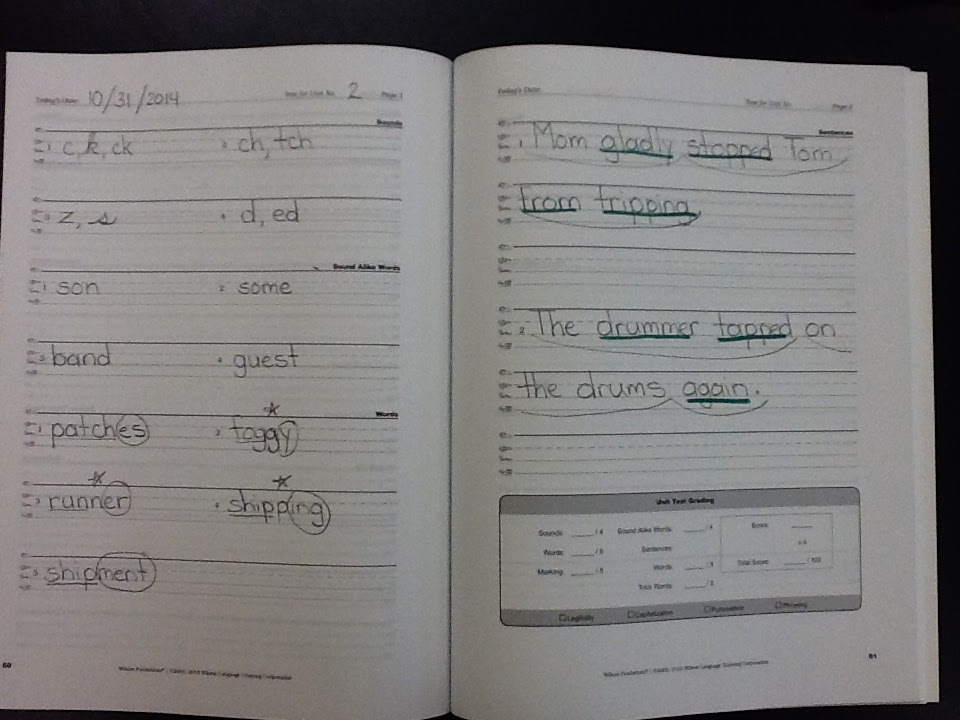 Today's Date 10/31/2014 Test for Unit No. 2 Page 1
Sounds
1 c, k, ck 2 ch, tch
3 z, s 4 d, ed
Sound Alike Words
1 son 2 some
3 band 4 guest
Words
1 patches 2 foggy
3 runner 4 shipping
5 shipment
60
Today's Date Test for Unit No. Page 2
Sentences
1. Mom gladly stopped Tom
from tripping.
2. The drummer tapped on
the drums again.
Unit Test Grading
Sounds /4 Sound Alike Words /4 Score
Words /5 Sentences x 4
Marking /5 Words Total Score /100
Trick Words /2
Legibility Capitalization Punctuation Phrasing
61